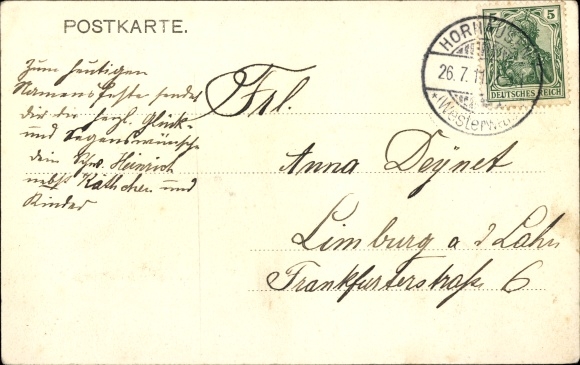 POSTKARTE.
Zum heutigen
Namensfeste sendet
dir die herzl. Glück-
und Segenswünsche
dein Heinrich
nebst Käthchen und
Kinder
Frl.
Anna Deÿnet
Limburg a d Lahn
Frankfurterstraße 6
26.7.11
Westerwald
5 5
DEUTSCHES REICH